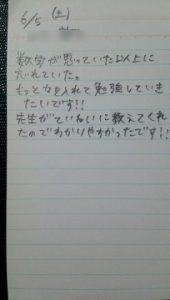 6/5 (土)
数学が思っていた以上に
穴れていた。
もっと力を入れて勉強していき
たいです!!
先生がていねいに教えてくれ
たのでわかりやすかったです!!